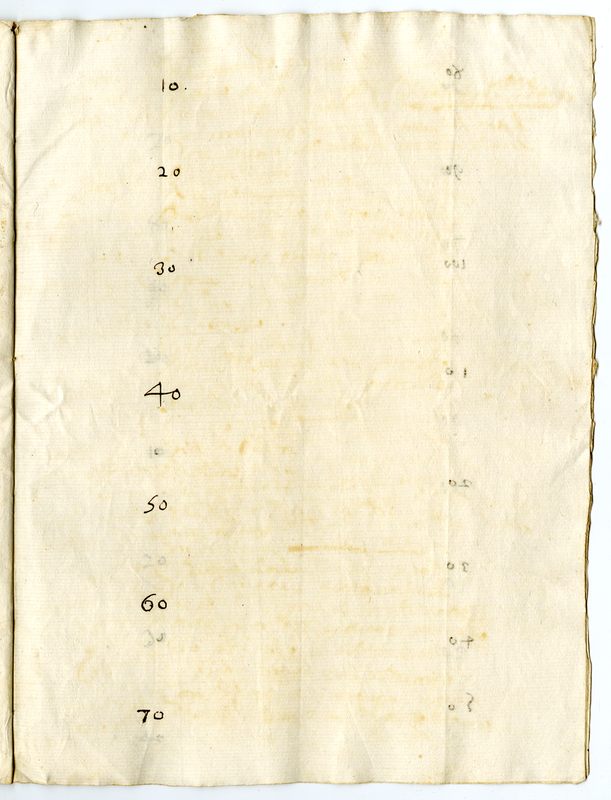 10.
20
30
40
50
60
70